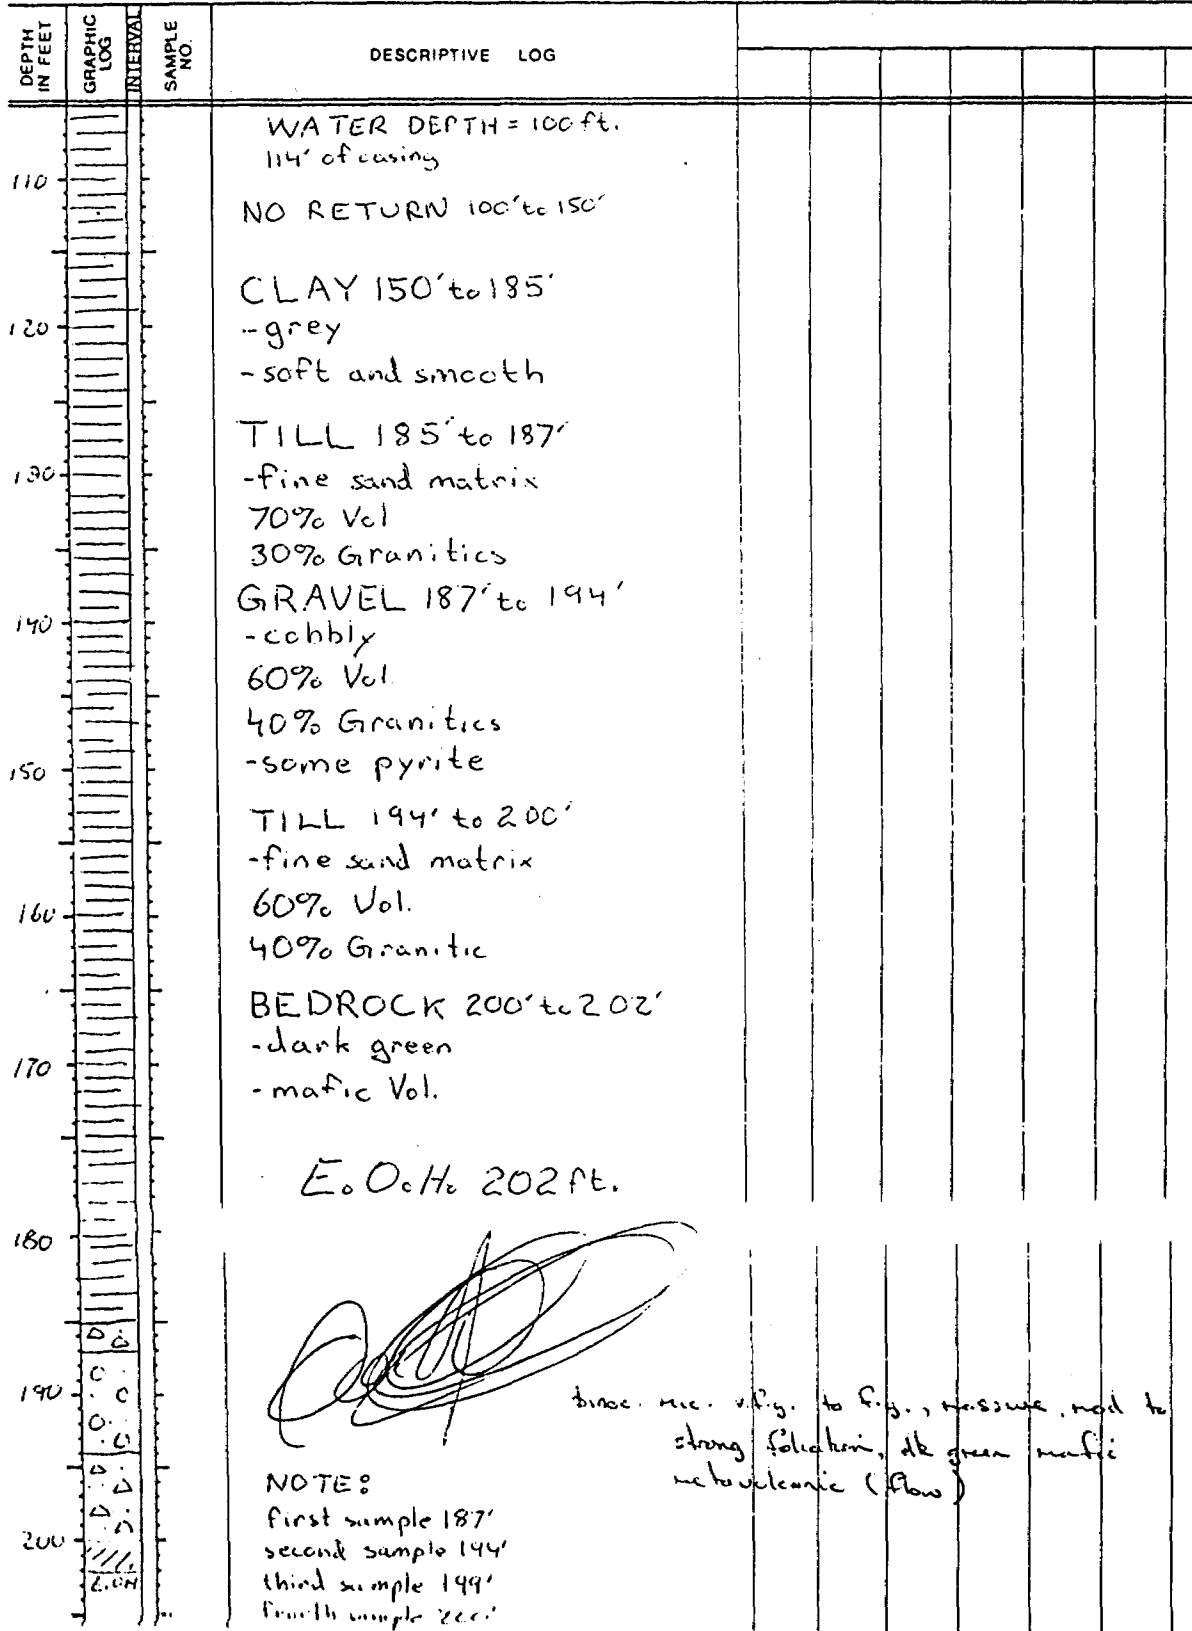 DEPTH IN FEET
GRAPHIC LOG
INTERVAL
SAMPLE NO.
DESCRIPTIVE LOG
WATER DEPTH = 100 ft.
114' of casing
110
NO RETURN 100' to 150'
CLAY 150' to 185'
120
- grey
- soft and smooth
TILL 185' to 187'
130
- fine sand matrix
70% Vol
30% Granitics
GRAVEL 187' to 194'
140
- cobbly
60% Vol.
40% Granitics
150
- some pyrite
TILL 194' to 200'
- fine sand matrix
160
60% Vol.
40% Granitic
BEDROCK 200' to 202'
- dark green
170
- mafic Vol.
E.O.H. 202 ft.
180
190
v.f.g. to f.g., massive, mod to
strong foliation, dk green mafic
metavolcanic (flow)
NOTE:
first sample 187'
200
second sample 194'
E.O.H
third sample 199'
fourth sample 200'